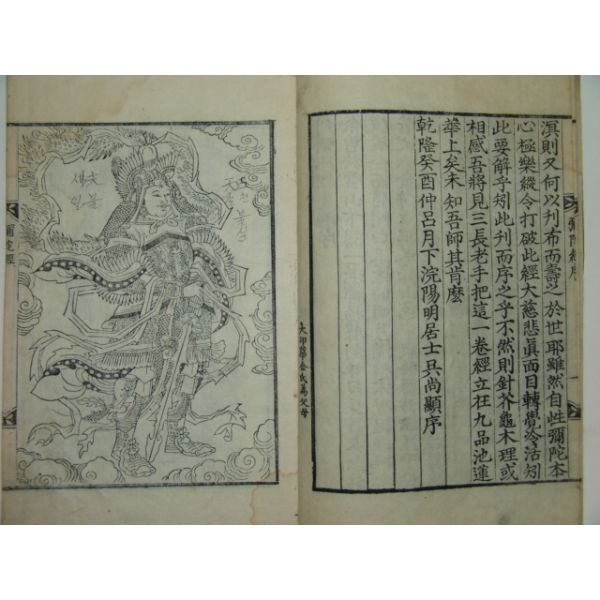 溟則又何以刊布而壽之於世耶雖然自性彌陀本
心極樂纔令打破此經大慈悲眞面目轉覺冷活勿
此要解乎矧此刊而序之乎不然則針芥龜木理或
相感吾將見三長老手把這一卷經立在九品池蓮
華上矣未知吾師其肯麼
乾隆癸酉仲呂月下浣陽明居士兵尚顯序
彌陀經序
一
彌陀經